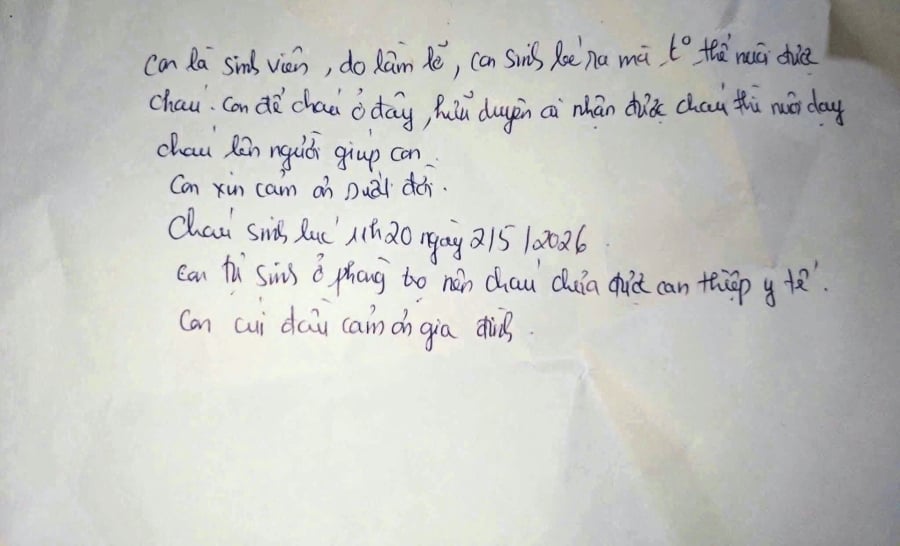 Con là sinh viên, do lầm lỡ, con sinh bé ra mà k° thể nuôi được
cháu. Con để cháu ở đây, hữu duyên ai nhận được cháu thì nuôi dạy
cháu lên người giúp con
Con xin cảm ơn suốt đời.
Cháu sinh lúc 11h20 ngày 2/5/2026.
Con tự sinh ở phòng trọ nên cháu chưa được can thiệp y tế.
Con cúi đầu cảm ơn gia đình.